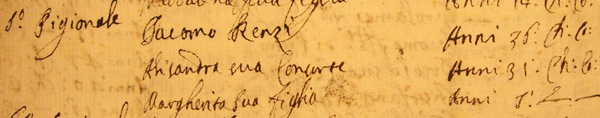 figlia Anni 14: Ch: C:
P.º Pigionale Jacomo Renzi Anni 36: Ch: C:
Arisandra sua Consorte Anni 31: Ch: C:
Margherita sua figlia Anni